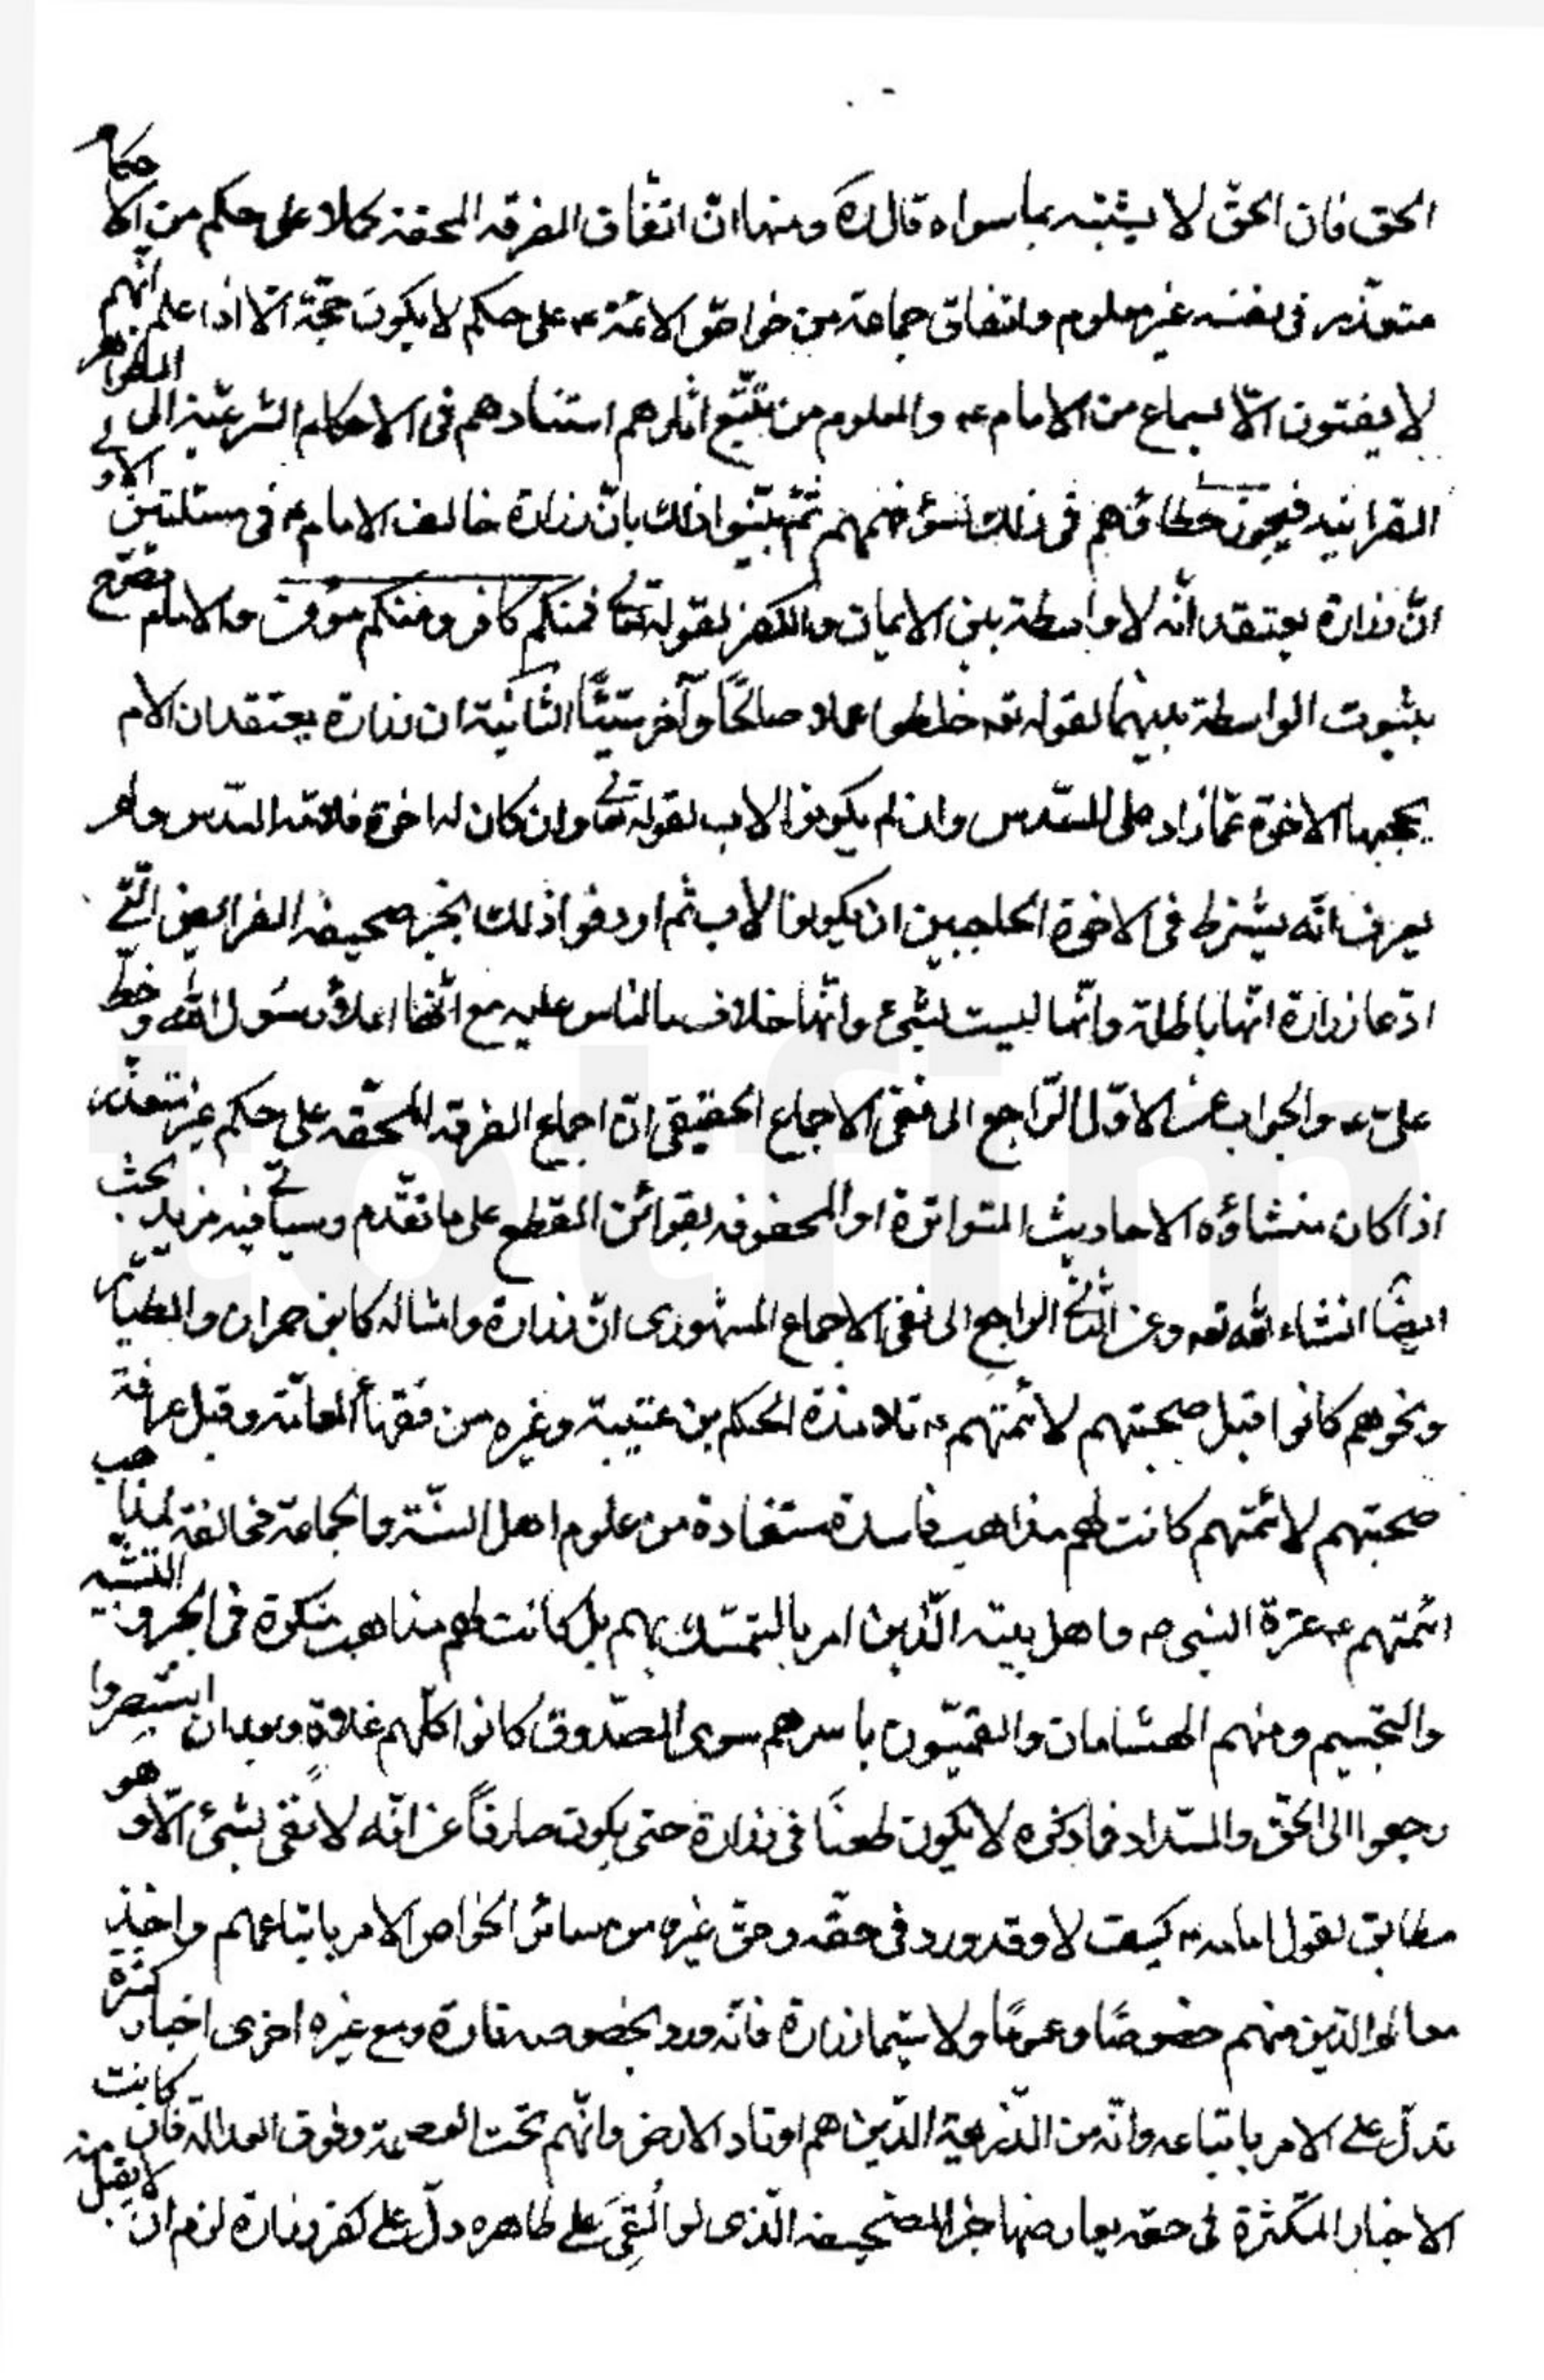 الحق فان الحقّ لا يشتبه بما سواه قال ره ومنها انّ اتفاق الفرقه المحقه كملا على حكم من الاحكام
متعذّر فى نفسه غير معلوم واتفاق جماعة من خواصّ الائمّة ع على حكم لا يكون حجّة الّا اذا علم انّهم
لا يفتون الّا بسماع من الامام ع والمعلوم من تتّبع اثارهم استنادهم فى الاحكام الشرعيّة الى الظواهر
القرانيه فيجوز خطاؤهم فى ذلك لسؤ فهمهم ثمّ بيّنوا ذلك بانّ زرارة خالف الامام ع فى مسئلتين الاولى
انّ زرارة يعتقد انّه لا واسطة بين الايمان والكفر لقوله تعالى فمنكم كافر ومنكم مؤمن والامام ع صرّح
بثبوت الواسطة بينهما لقوله تعه خلطوا عملا صالحًا وآخر سيّئًا الثّانية ان زرارة يعتقد ان الام
يحجبها الاخوة عمّا زاد على السّدس وان لم يكونوا لاب لقوله تعالى وان كان له اخوة فلامّه السّدس ولم
يعرف انّه يشترط فى الاخوة الحاجبين ان يكونوا لاب ثم اردفوا ذلك بخبر صحيفه الفرائض الّتي
ادّعا زرارة انّها باطلة وانّها ليست بشىء وانّها خلاف ما الناس عليه مع انّها املاؤ رسول الله ص وخطّ
علىّ ع والجواب عن الاوّل الرّاجع الى نفى الاجماع الحقيقى انّ اجماع الفرقه المحقّه على حكم غير متعذّر
اذا كان منشاؤه الاحاديث المتواترة او المحفوفه بقرائن القطع على ما تقدّم وسياتي فيه مزيد بحث
ايضًا انشاء الله تعه وعن الثّاني الراجع الى نفى الاجماع المشهورى انّ زرارة وامثاله كابن حمران والطيّار
ونحوهم كانوا قبل صحبتهم لائمتهم ع تلامذة الحكم بن عتيبة وغيره من فقهاء العامّة وقبل عرافة
صحبتهم لائمّتهم كانت لهم مذاهب فاسدة مستفادة من علوم اهل السنّة والجماعة مخالفة لمذاهب
ائمّتهم ع عترة النبى ص واهل بيته الّذين امر بالتمسّك بهم بل كانت لهم مذاهب منكرة فى الجبر والتشبيه
والتجسيم ومنهم الهشامان والقميّون باسرهم سوى الصّدوق كانوا كلّهم غلاة وبعد ان استبصروا
رجعوا الى الحقّ والسّداد فما ذكره لا يكون طعنًا فى زرارة حتى يكون صارفًا عن انّه لا يفتى بشىء الّا وهو
مطابق لقول امامه ع كيف لا وقد ورد فى حقّه وحق غيره من سائر الخواص الامر باتباعهم واخذ
معالم الدّين منهم خصوصًا وعمومًا ولا سيّما زرارة فانّه ورد بخصوصه تارة ومع غيره اخرى اخبار كثيرة
تدلّ على الامر باتباعه وانّه من الّذين هم اوتاد الارض وانّهم تحت العصمة وفوق العدالة فان كانت
الاخبار المتكثرة فى حقه يعارضها خبر الصّحيفه الّذى لو ابُقِىَ على ظاهره دلّ على كفر زرارة لزم ان لا يقبل منه